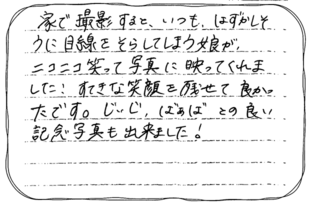 家で撮影すると、いつも、はずかしそ
うに目線をそらしてしまう娘が、
ニコニコ笑って写真に映ってくれま
した！すてきな笑顔を残せて良かっ
たです。じぃじ、ばぁばとの良い
記念写真も出来ました！